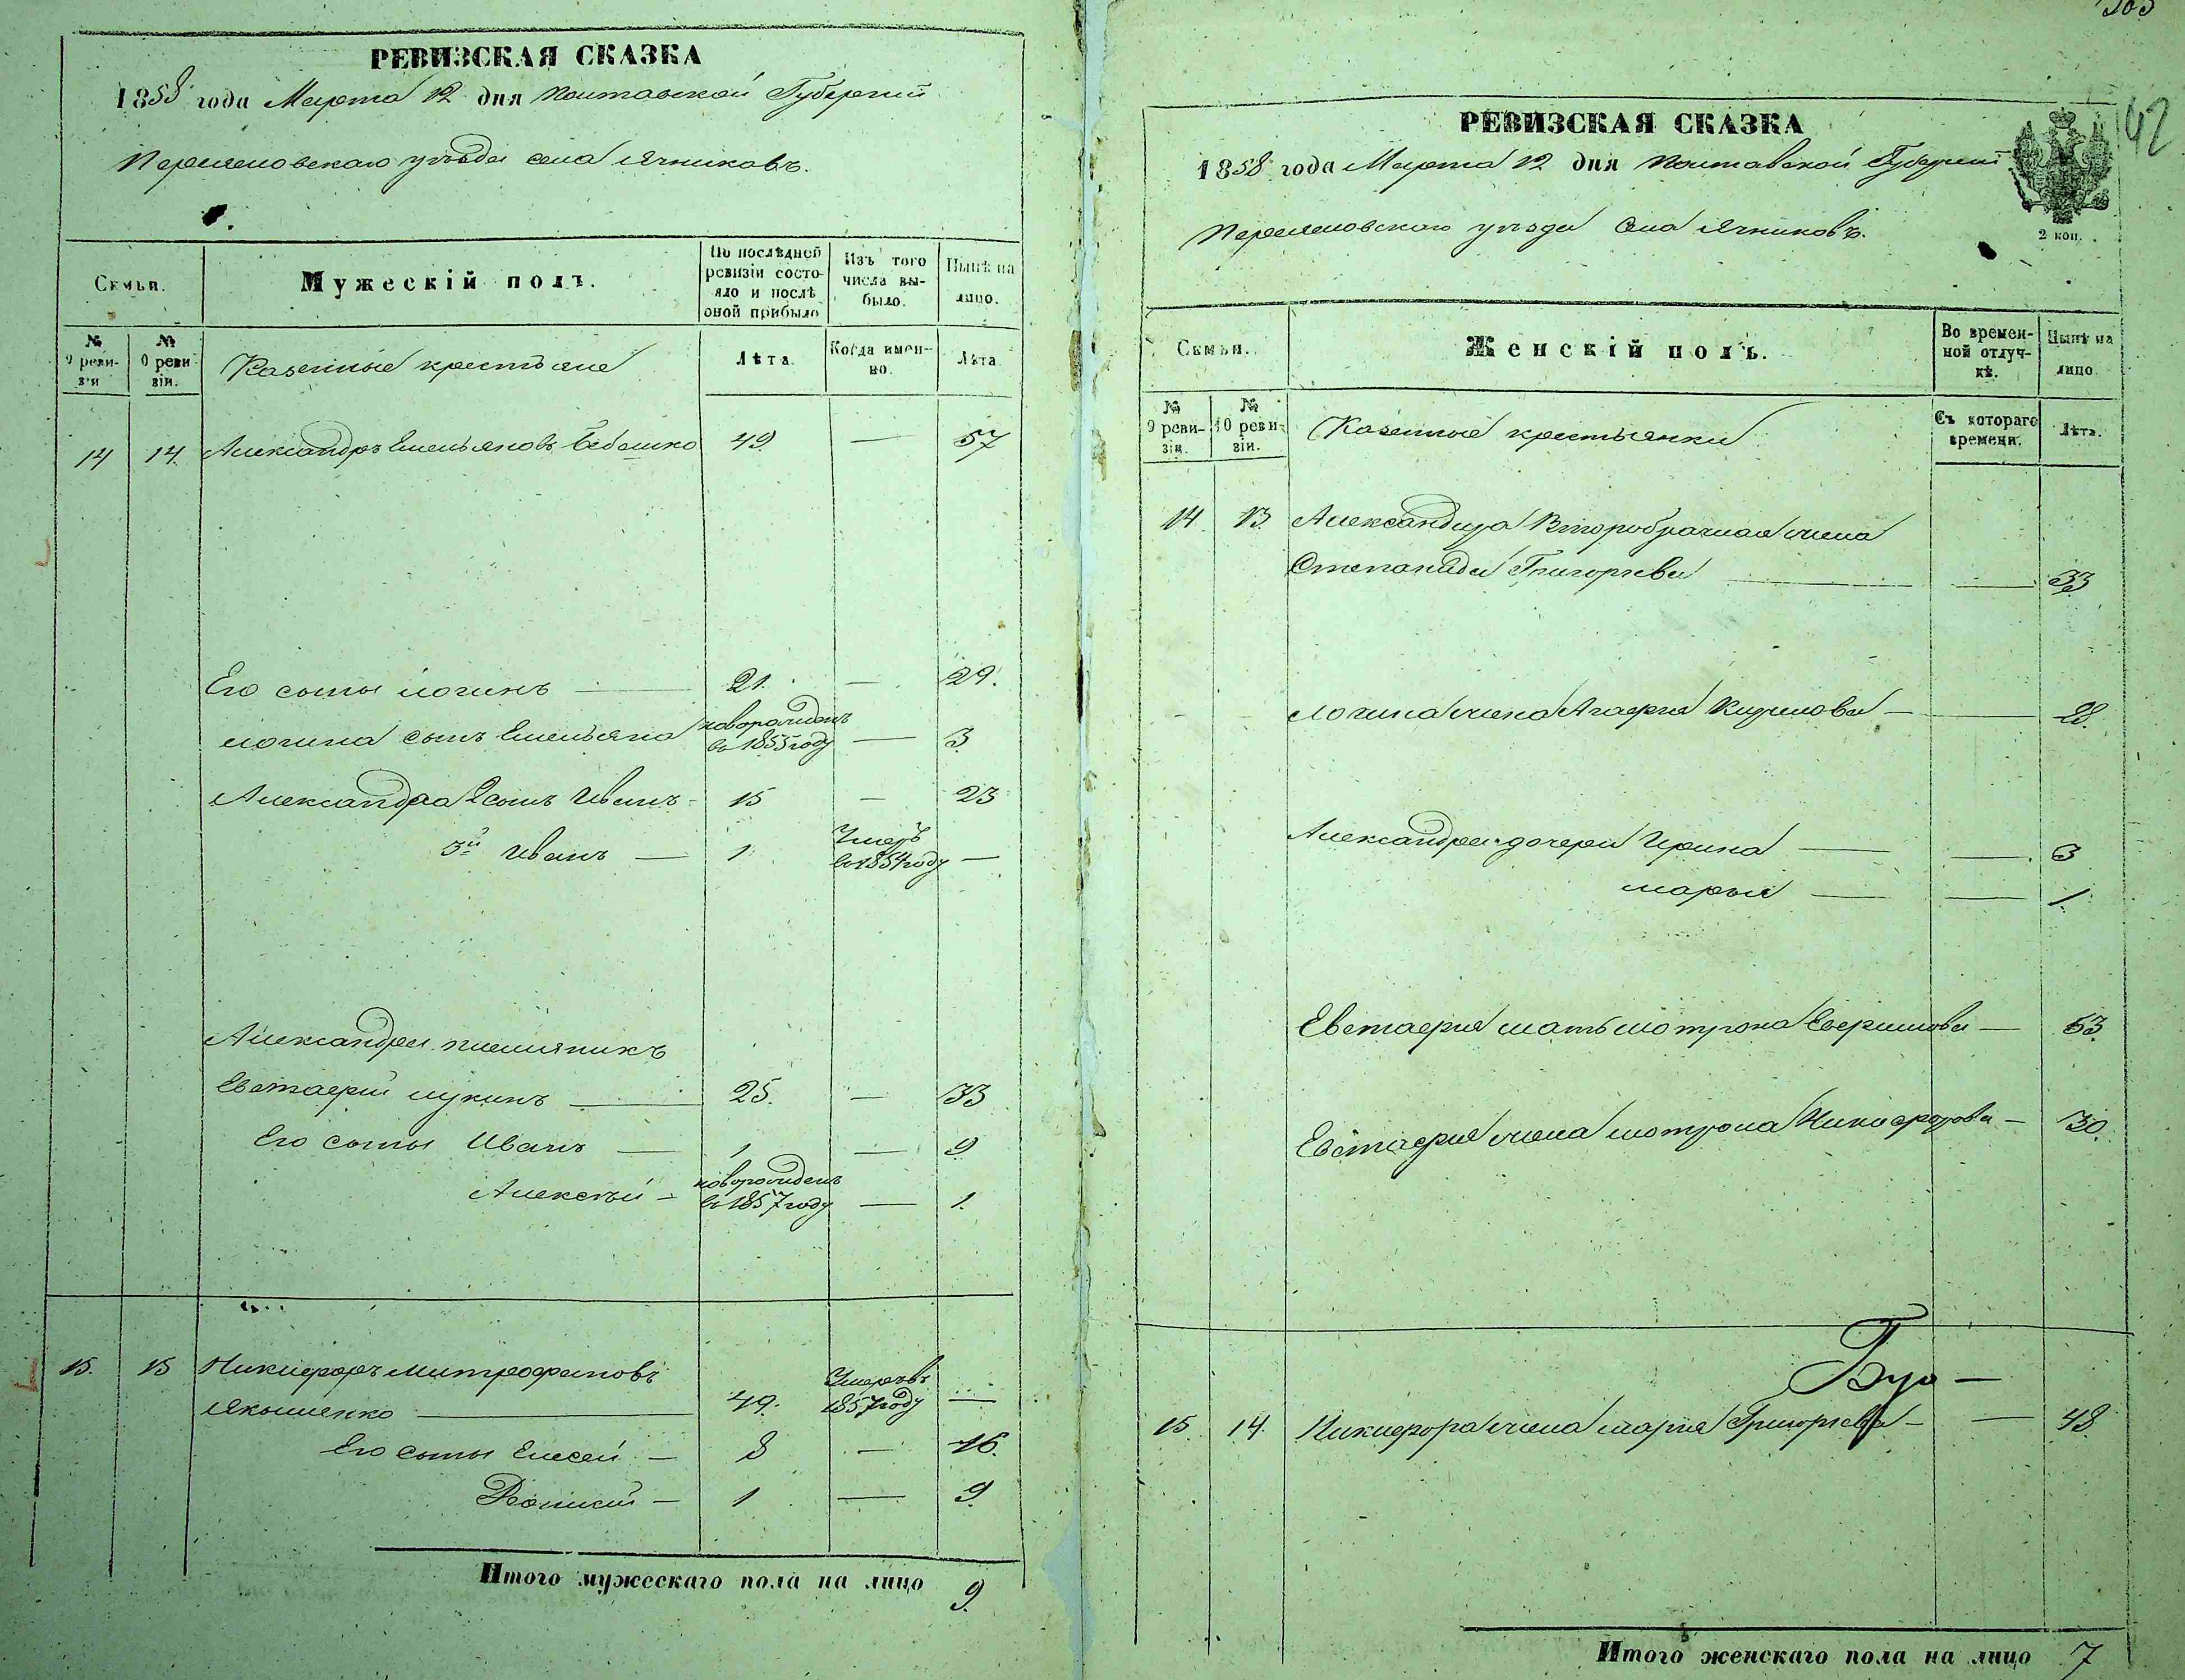 РЕВИЗСКАЯ СКАЗКА
1858 года Марта 12 дня Полтавской Губернии
Переясловскаго уѣзда села Ячниковъ.
Семьи.
Мужескій полъ.
По послѣдней ревизіи состояло и послѣ оной прибыло
Изъ того числа выбыло.
Нынѣ на лицо.
№ 9 ревизіи
№ 10 ревизіи.
Казенные крестьяне
Лѣта.
Когда именно.
Лѣта
14 14. Александръ Емельяновъ 49. — 57
Его сыны Логинъ — 21. — 29.
Логина сынъ Емельянъ новорожденъ въ 1855 году — 3.
Александра 2 сынъ Иванъ 15 — 23
3й Иванъ — 1 Умеръ въ 1854 году —
Александра племяникъ
Евстафий Лукинъ — 25. — 33
Его сыны Иванъ — 1 — 9
Алексѣй — новорожденъ въ 1857 году — 1.
15. 15 Никифоръ Митрофановъ
Якименко — 49. Умеръ въ 1857 году —
Его сыны Елисей — 8 — 16.
— 1 — 9.
Итого мужескаго пола на лицо 9.
42
РЕВИЗСКАЯ СКАЗКА
1858 года Марта 12 дня Полтавской Губернии
Переясловскаго уѣзда Села Ячниковъ.
2 коп.
Семьи.
Женскій полъ.
Во временной отлучкѣ.
Нынѣ на лицо
№ 9 ревизіи.
№ 10 ревизіи.
Казенные крестьянки
Съ котораго времени.
Лѣта.
14. 13. Александра Второбрачная жена
Степанида Григорьева — — 33
Логина жена Агафия Кирилова — — 28.
Александра дочери Ирина — — 3
Марья — — 1.
Евстафия мать Мотрона Ефимова — 53.
Евстафия жена Мотрона Никифорова — 30.
15. 14. Никифора жена Мария Григорьева — — 48
Итого женскаго пола на лицо 7